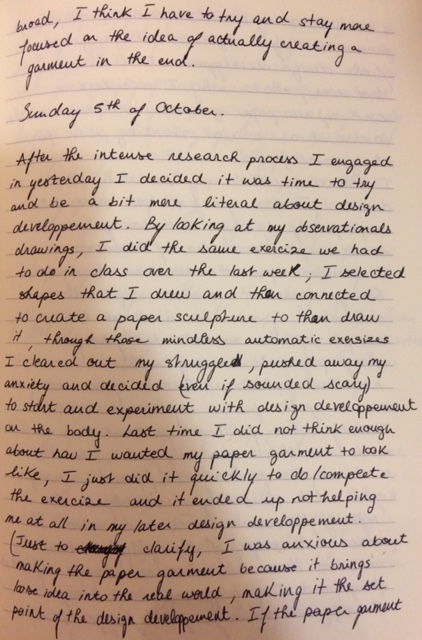 broad, I think I have to try and stay more
focused on the idea of actually creating a
garment in the end.
Sunday 5th of October.
After the intense research process I engaged
in yesterday I decided it was time to try
and be a bit more literal about design
developpement. By looking at my observationals
drawings, I did the same exercize we had
to do in class over the last week, I selected
shapes that I drew and then connected
to create a paper sculpture to then draw
it, through those mindless automatic exersizes
I cleared out my struggled, pushed away my
anxiety and decided (even if sounded scary)
to start and experiment with design developpement
on the body. Last time I did not think enough
about how I wanted my paper garment to look
like, I just did it quickly to do/complete
the exercize and it ended up not helping
me at all in my later design developpement.
(Just to clarify, I was anxious about
making the paper garment because it brings
loose idea into the real world, making it the set
point of the design developpement. If the paper garment